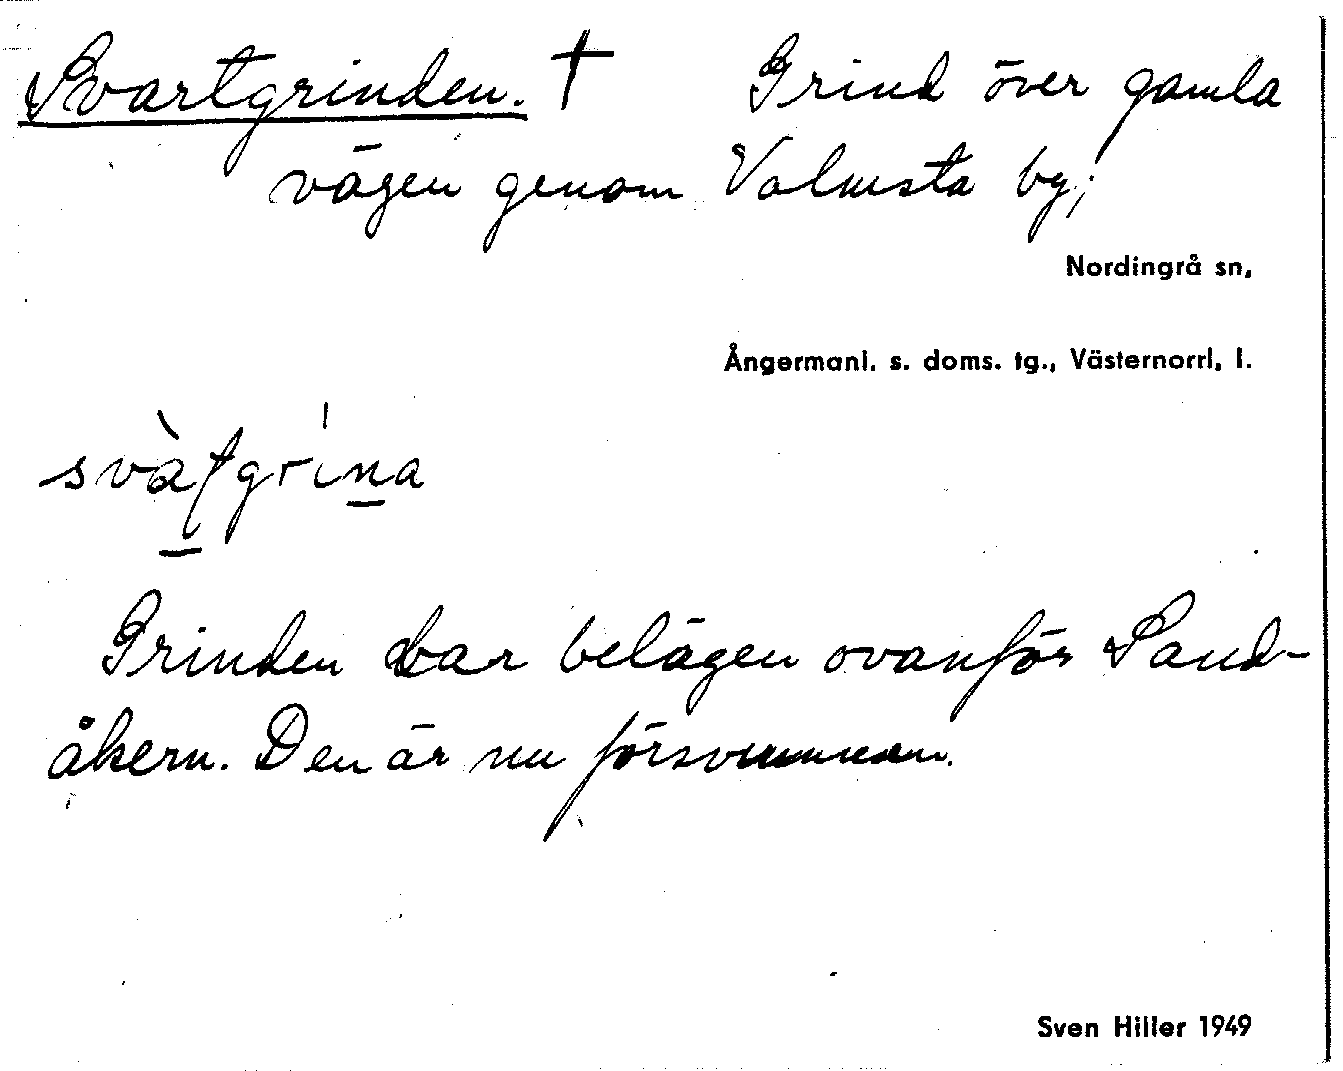 Svartgrinden. † Grind över gamla
vägen genom Valmsta by;
Nordingrå sn,
Ångermanl. s. doms. tg., Västernorrl. l.
Grinden var belägen ovanför Sand-
åkern. Den är nu försvunnen.
Sven Hiller 1949